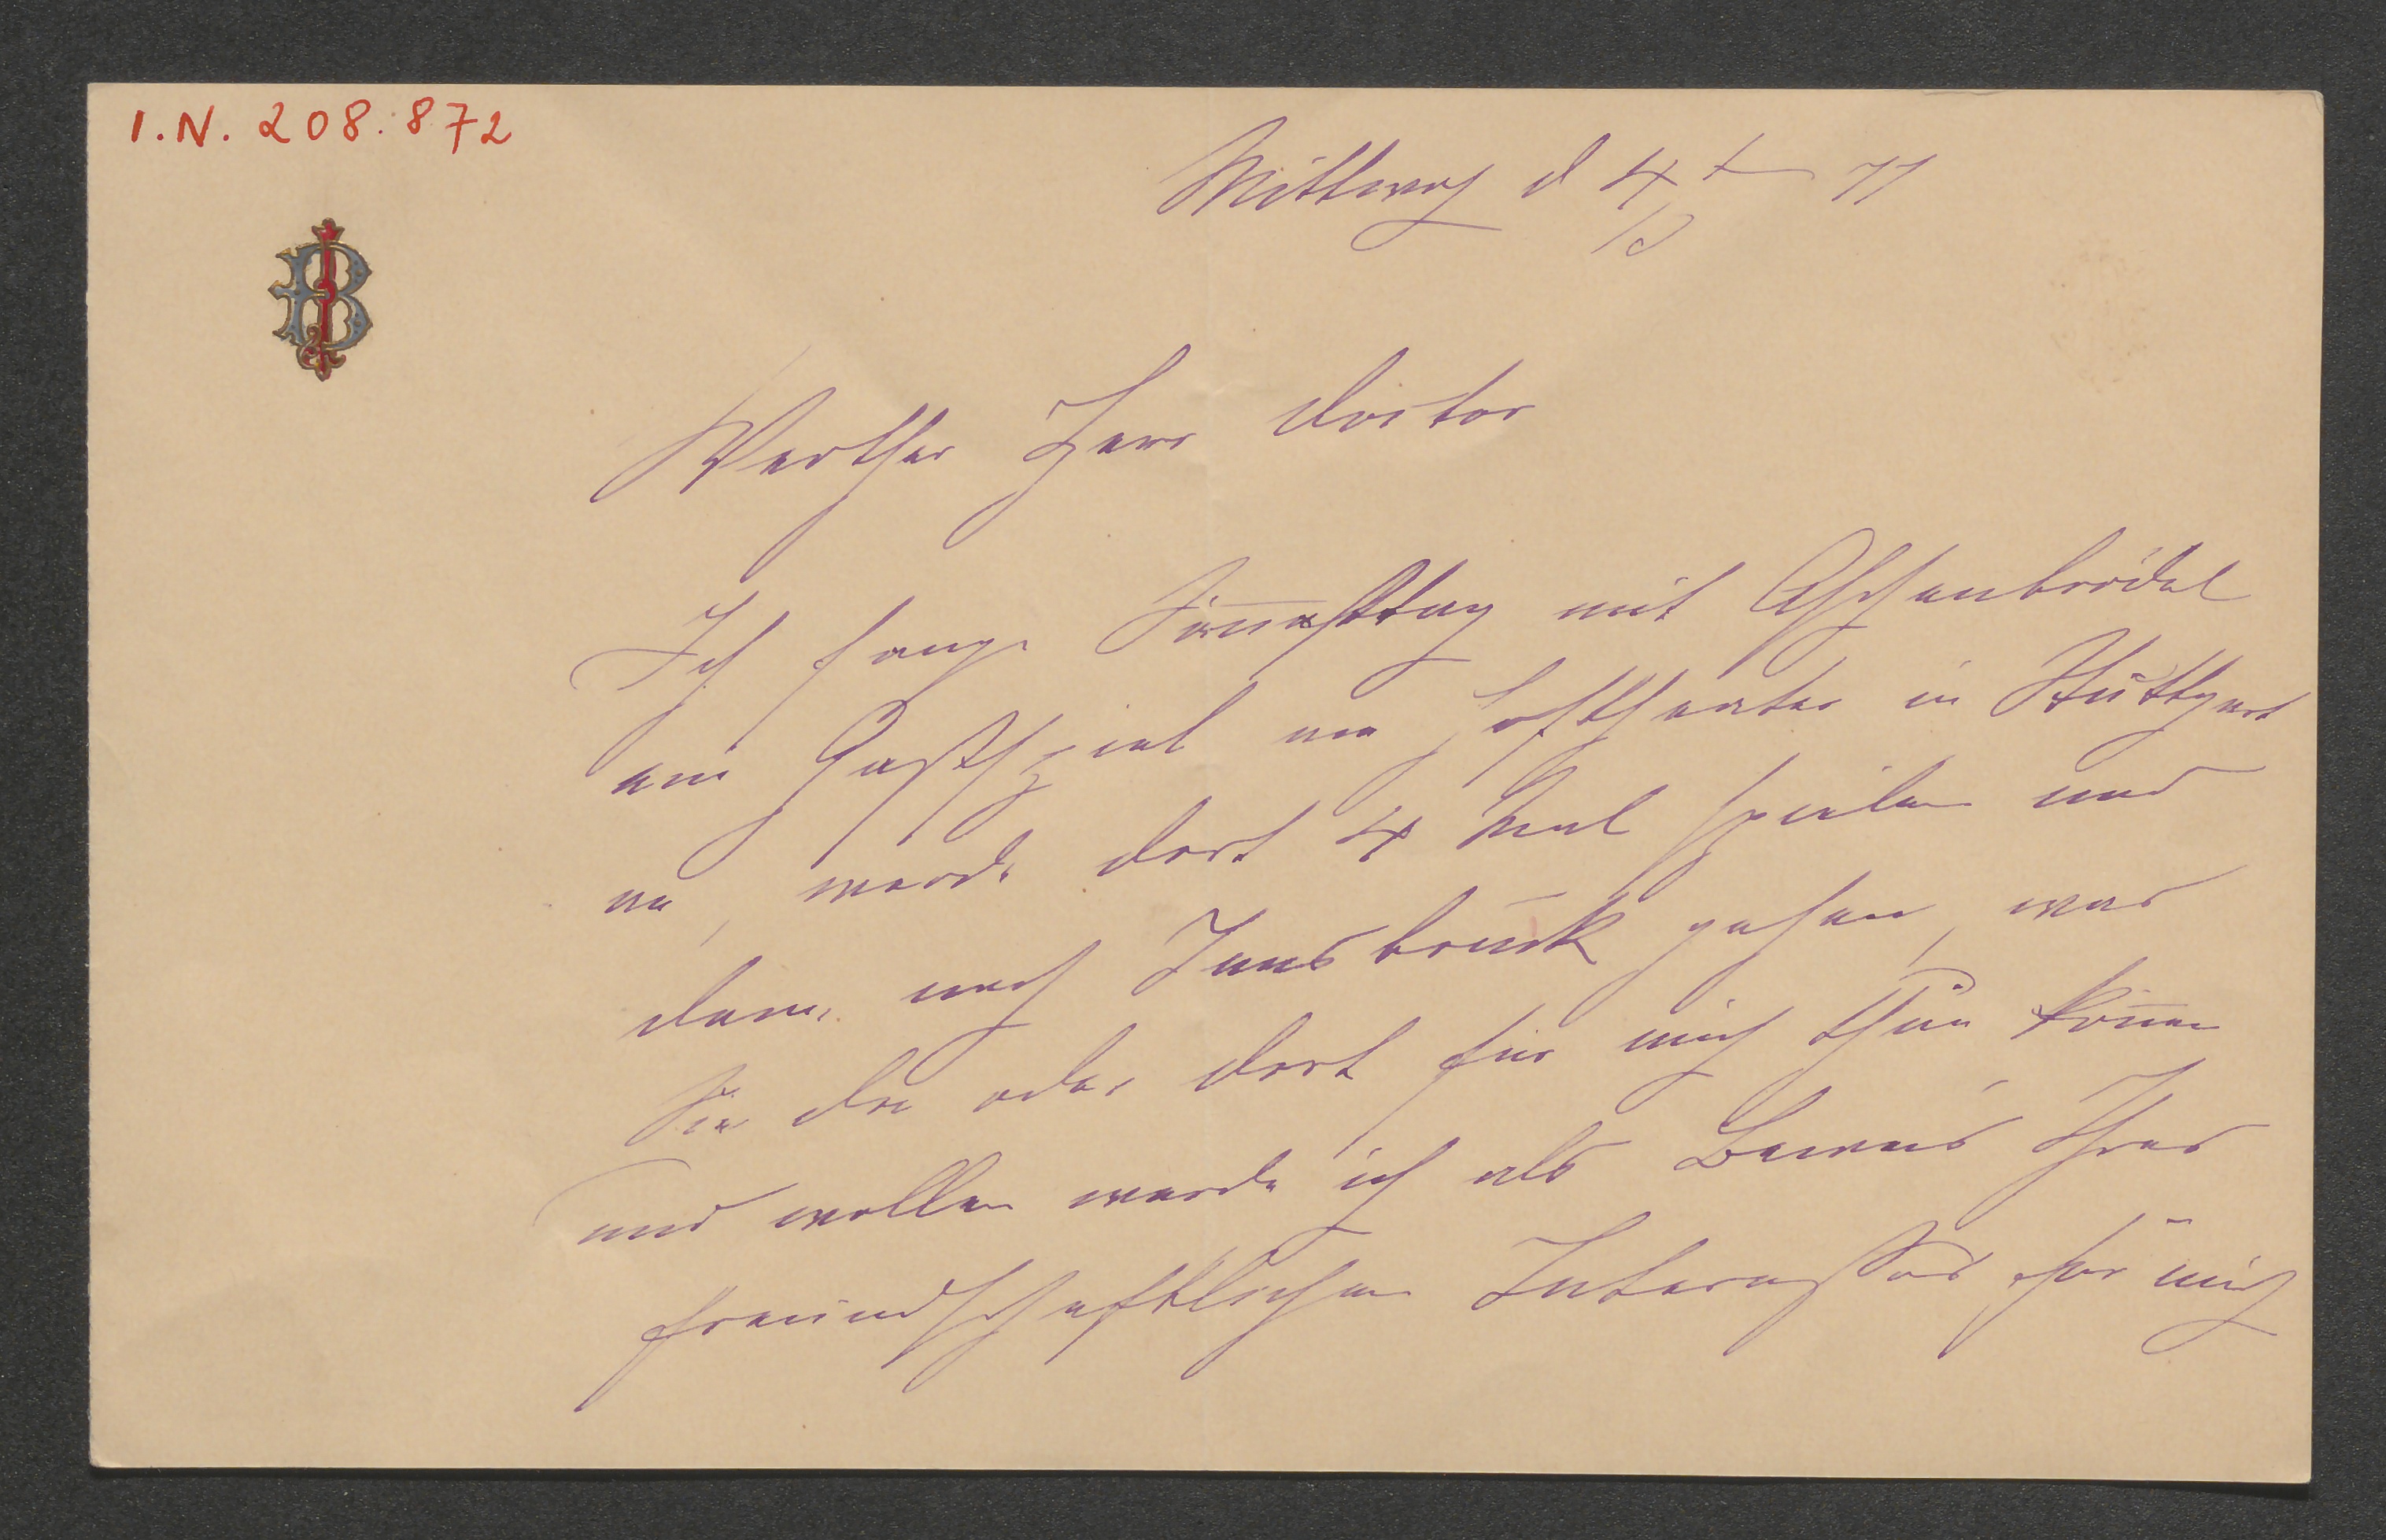 I.N. 208.872
Mittwoch d 4t 77
10
B
Werther Herr Doctor
Ich fange Sonnabttag mit Aschenbrödel
ein Gastspiel am Hoftheater in Stuttgart
an, werde dort 4 Mal spielen und
dann nach Innsbruck gehen, was
Sie da oder dort für mich thun können
und wollen werde ich als Beweis Ihres
freundschaftlichen Interesses für mich